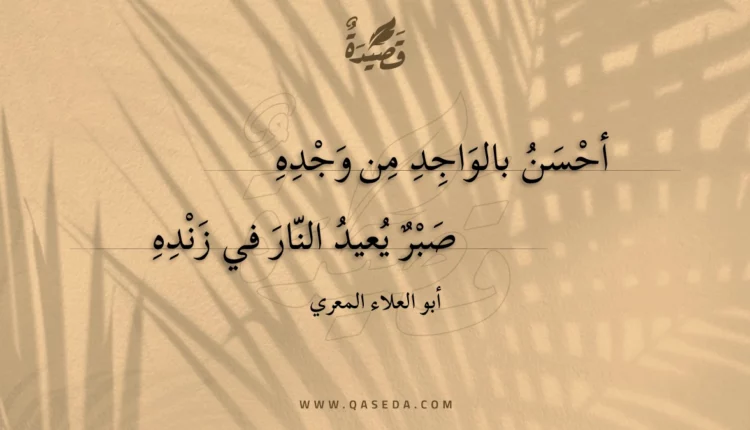 قَصِيْدَةٌ
أحْسَنُ بالوَاجِدِ مِن وَجْدِهِ
صَبْرٌ يُعيدُ النّارَ في زَنْدِهِ
أبو العلاء المعري
WWW.QASEDA.COM